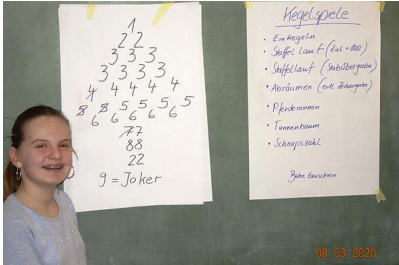 1
2 2
3 3 3
3 3 3 3
4 4 4 4 4
8 8 5 5 5 5 5
6 6 6 6 6 6
77
88
22
9 = Joker
Kegelspiele
• Einkegeln
• Staffellauf (Ziel = 100)
• Staffellauf (Stabübergabe)
• Abräumen
• Pferderennen
• Tannenbaum
• Schnapszahl
Bahn tauschen
08 03 2020